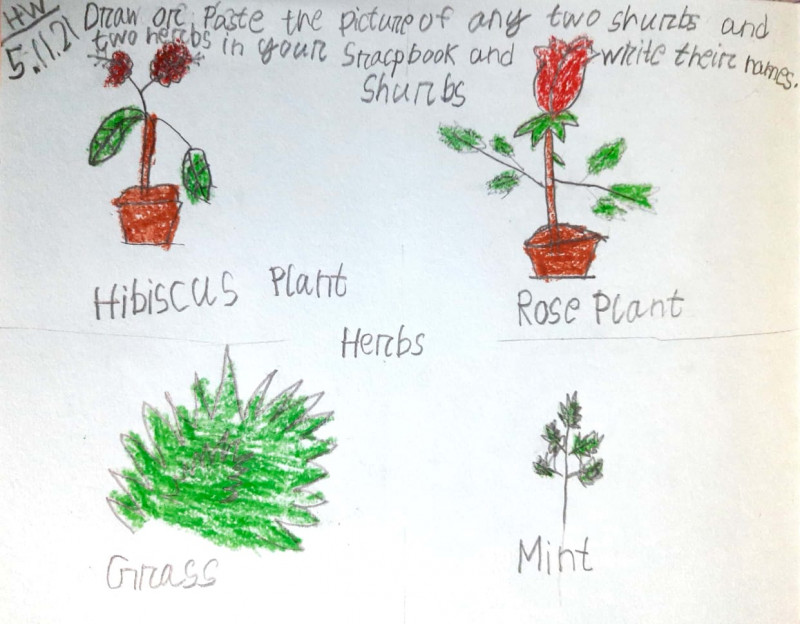 HW
5.11.21
Draw or Paste the picture of any two shurbs and
two herbs in your Sracpbook and write their names.
Shurbs
Hibiscus Plant
Rose Plant
Herbs
Grass
Mint